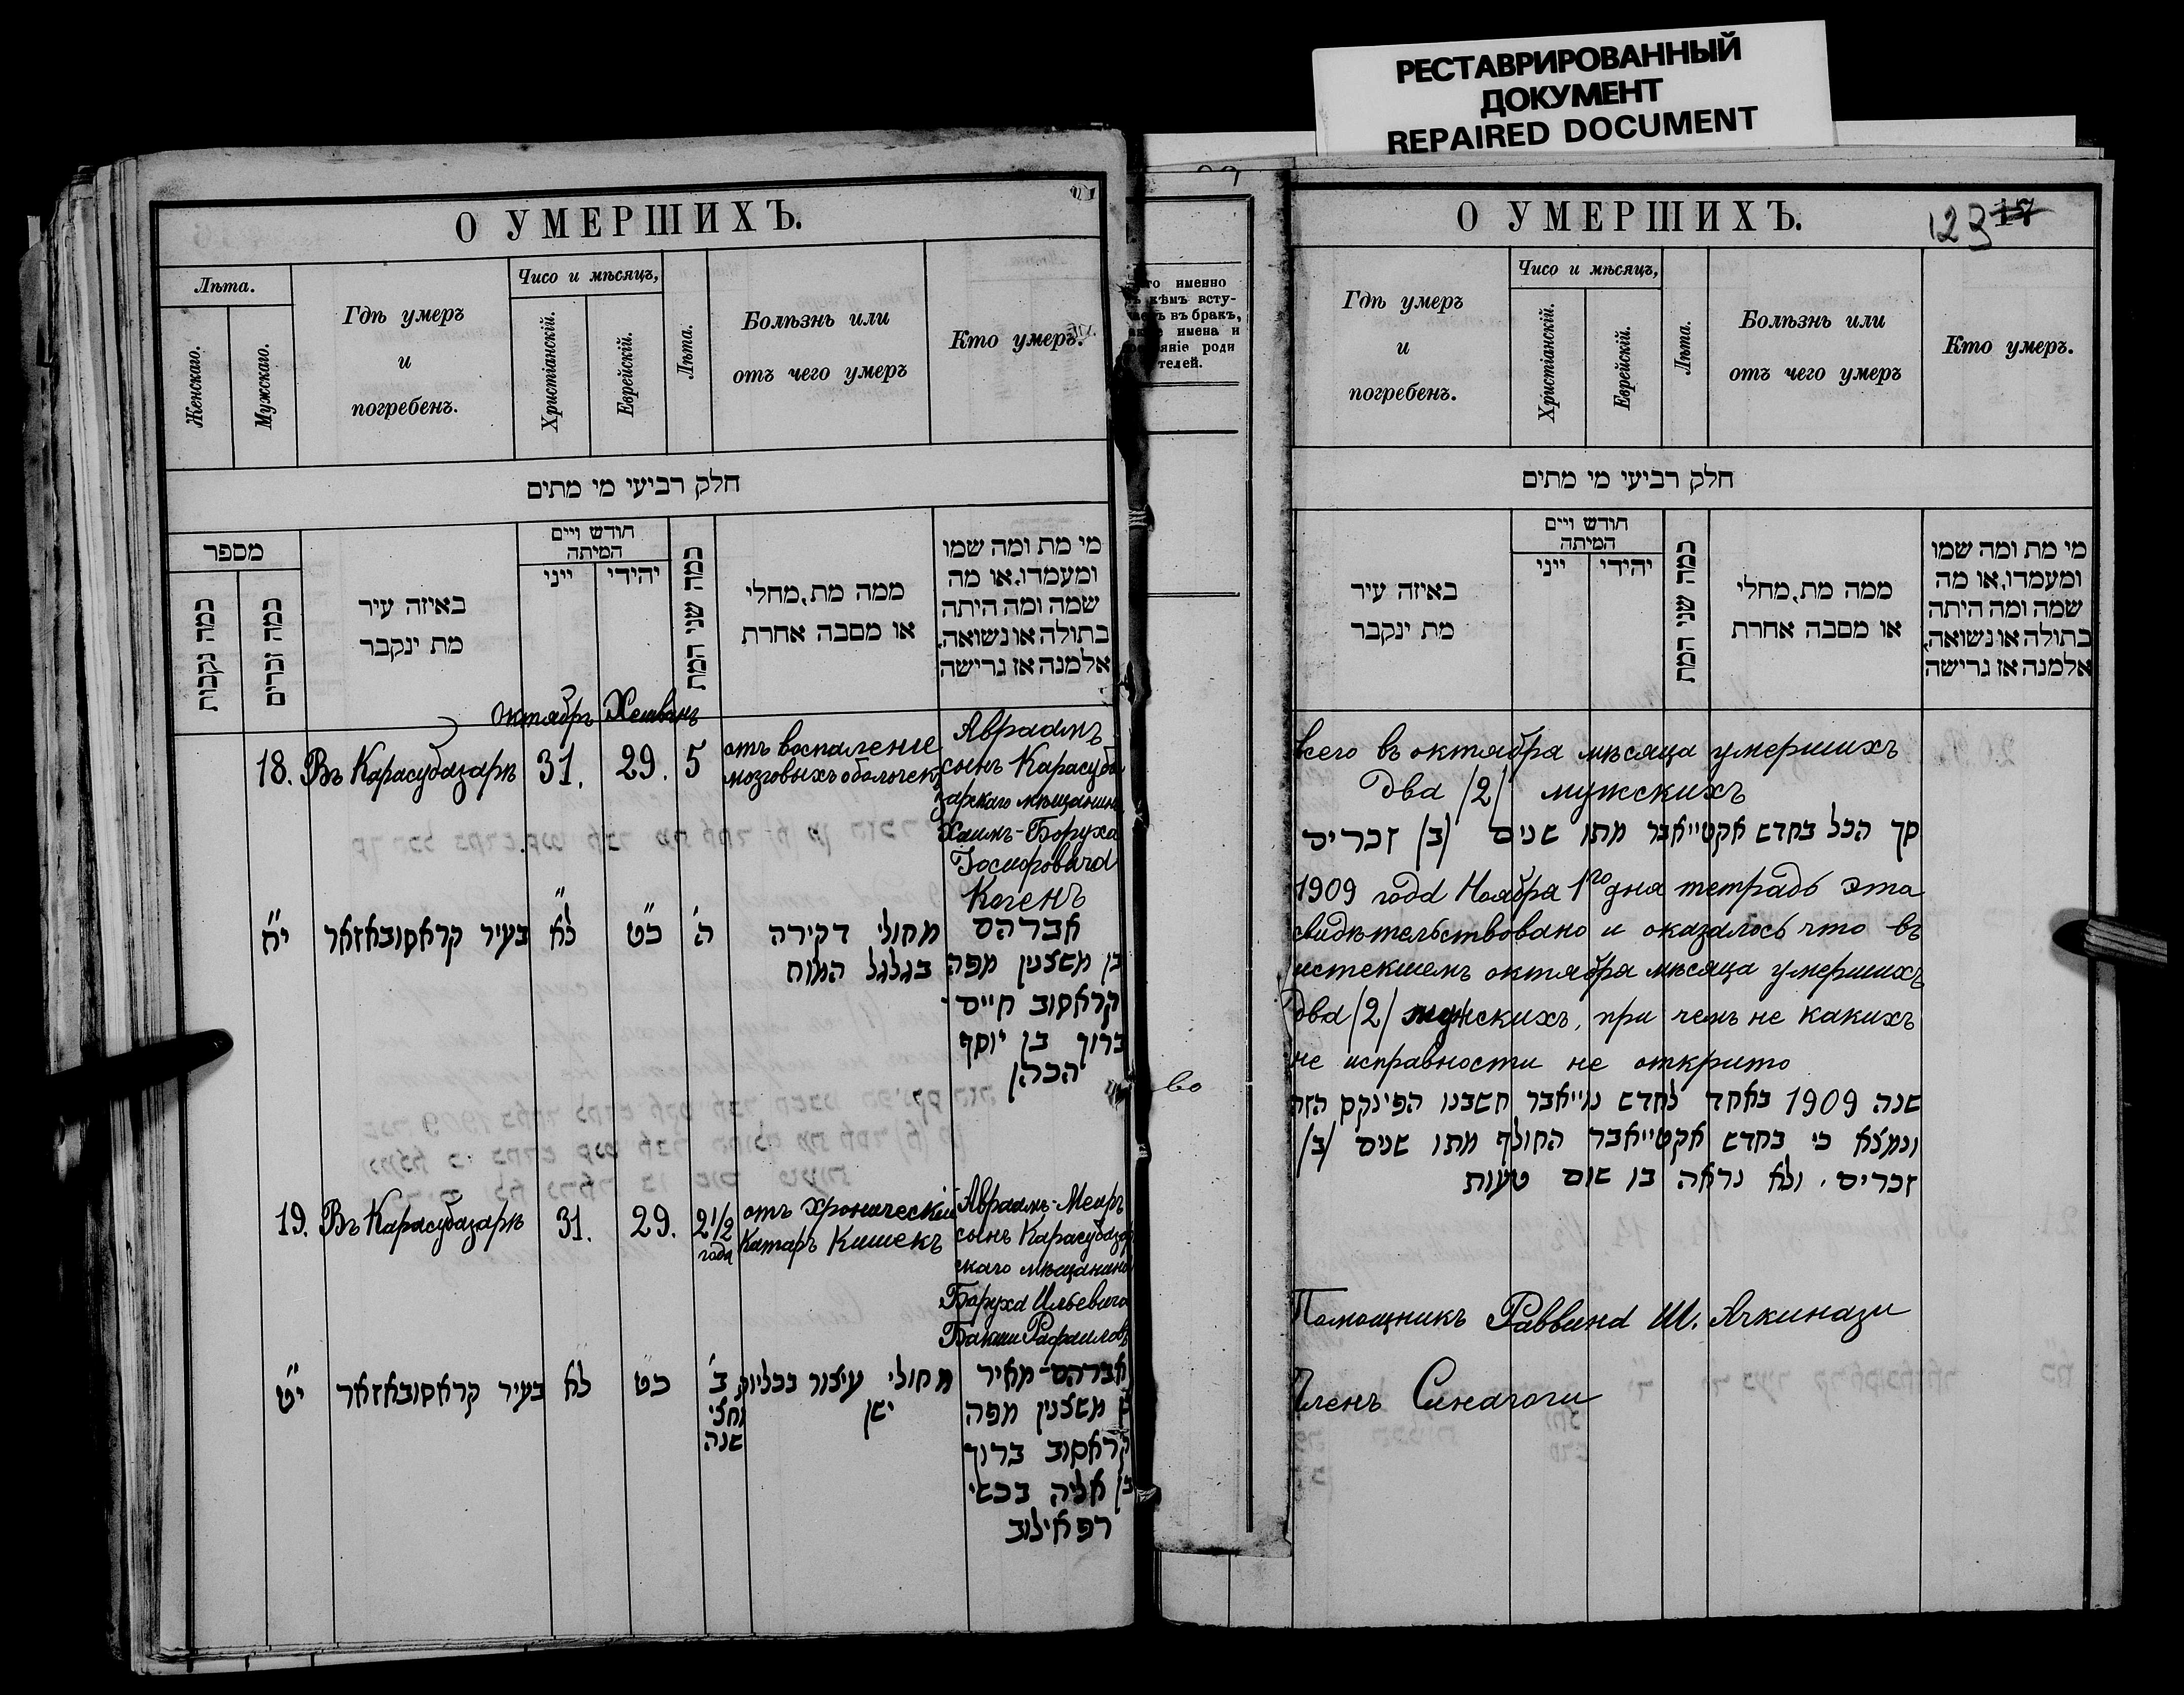 РЕСТАВРИРОВАННЫЙ
ДОКУМЕНТ
REPAIRED DOCUMENT
О УМЕРШИХЪ.
Лѣта.
Женскаго.
Мужскаго.
Гдѣ умеръ
и
погребенъ.
Чисо и мѣсяцъ,
Христіанскій.
Еврейскій.
Лѣта.
Болѣзнь или
отъ чего умеръ
Кто умеръ.
חלק רביעי מי מתים
מספר
כמה נקבות
כמה זכרים
באיזה עיר
מת ינקבר
חודש ויים
המיתה
ייני
יהידי
כמה שני המת
ממה מת, מחלי
או מסבה אחרת
מי מת ומה שמו
ומעמדו, או מה
שמה ומה היתה
בתולה או נשואה,
אלמנה אז גרישה
октябрь Хешванъ
18. Въ Карасубазарѣ 31. 29. 5
отъ воспаление
мозговыхъ оболочекъ
Авраамъ
сынъ Карасуба
зарскаго мѣщанина
Хаимъ-Боруха
Іосифовича
Когенъ
י״ח
בעיר קראסובאזאר
ל״א
כ״ט
ה׳
מחולי דקירה
בגלגל המוח
אברהם
בן משצנין מפה
קראסוב חיים
ברוך בן יוסף
הכהן
19. Въ Карасубазарѣ 31. 29. 2 1/2
года
отъ хронический
Катаръ Кишекъ
Авраамъ-Меиръ
сынъ Карасубазар
скаго мѣщанина
Боруха Ильевича
Бакши Рафаиловъ
י״ט
בעיר קראסובאזאר
לא
כט
ב׳
וחצי
שנה
מחולי עיצור בכליות
ישן
אברהם-מאיר
בן משצנין מפה
קראסוב ברוך
בן אליה בכשי
רפאילוב
го именно
кѣмъ всту-
въ бракъ,
имена и
яніе роди
телей.
во
О УМЕРШИХЪ.
123 17
Гдѣ умеръ
и
погребенъ.
Чисо и мѣсяцъ,
Христіанскій.
Еврейскій.
Лѣта.
Болѣзнь или
отъ чего умеръ
Кто умеръ.
חלק רביעי מי מתים
באיזה עיר
מת ינקבר
חודש ויים
המיתה
ייני
יהידי
כמה שני המת
ממה מת, מחלי
או מסבה אחרת
מי מת ומה שמו
ומעמדו, או מה
שמה ומה היתה
בתולה או נשואה,
אלמנה אז גרישה
Всего въ октября мѣсяца умершихъ
два /2/ мужскихъ
סך הכל בחדש אקטייאבר מתו שנים (ב) זכרים
1909 года Ноября 1го дня тетрадь эта
свидѣтельствовано и оказалось что въ
истекшемъ октября мѣсяца умершихъ
два /2/ мужскихъ, при чемъ не какихъ
не исправности не открито
שנה 1909 באחד לחדש נוייאבר חשבנו הפינקס הזה
ונמצא כי בחדש אקטייאבר החולף מתו שנים (ב)
זכרים. ולא נראה בו שום טעות
Помощникъ Раввина Ш. Ачкинази
Членъ Синагоги